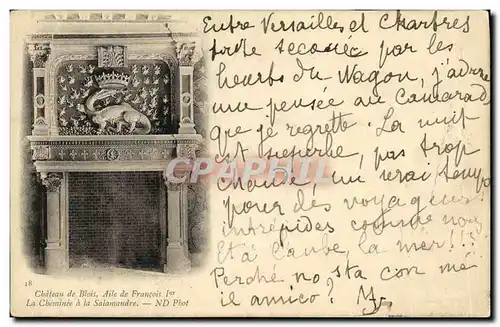 Entre Versailles et Chartres
toute secouée par les
heurts du Wagon, j'adresse
une pensée au Camarad
que je regrette. La nuit
est sereine, pas trop
chaude, un vrai temps
pour des voyageurs
intrépides comme nous
Et à l'aube, la mer!!!
Perché, no sta con me
il amico?
18
Château de Blois, Aile de François Ier
La Cheminée à la Salamandre. — ND Phot
CPA-PHILATELIE.COM